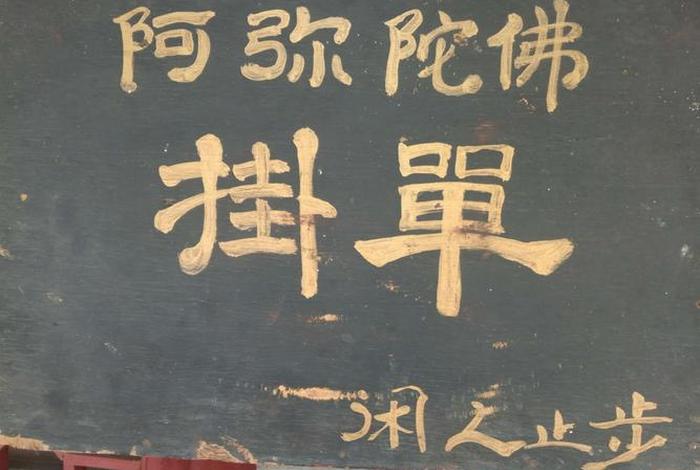 阿弥陀佛
掛單
闲人止步